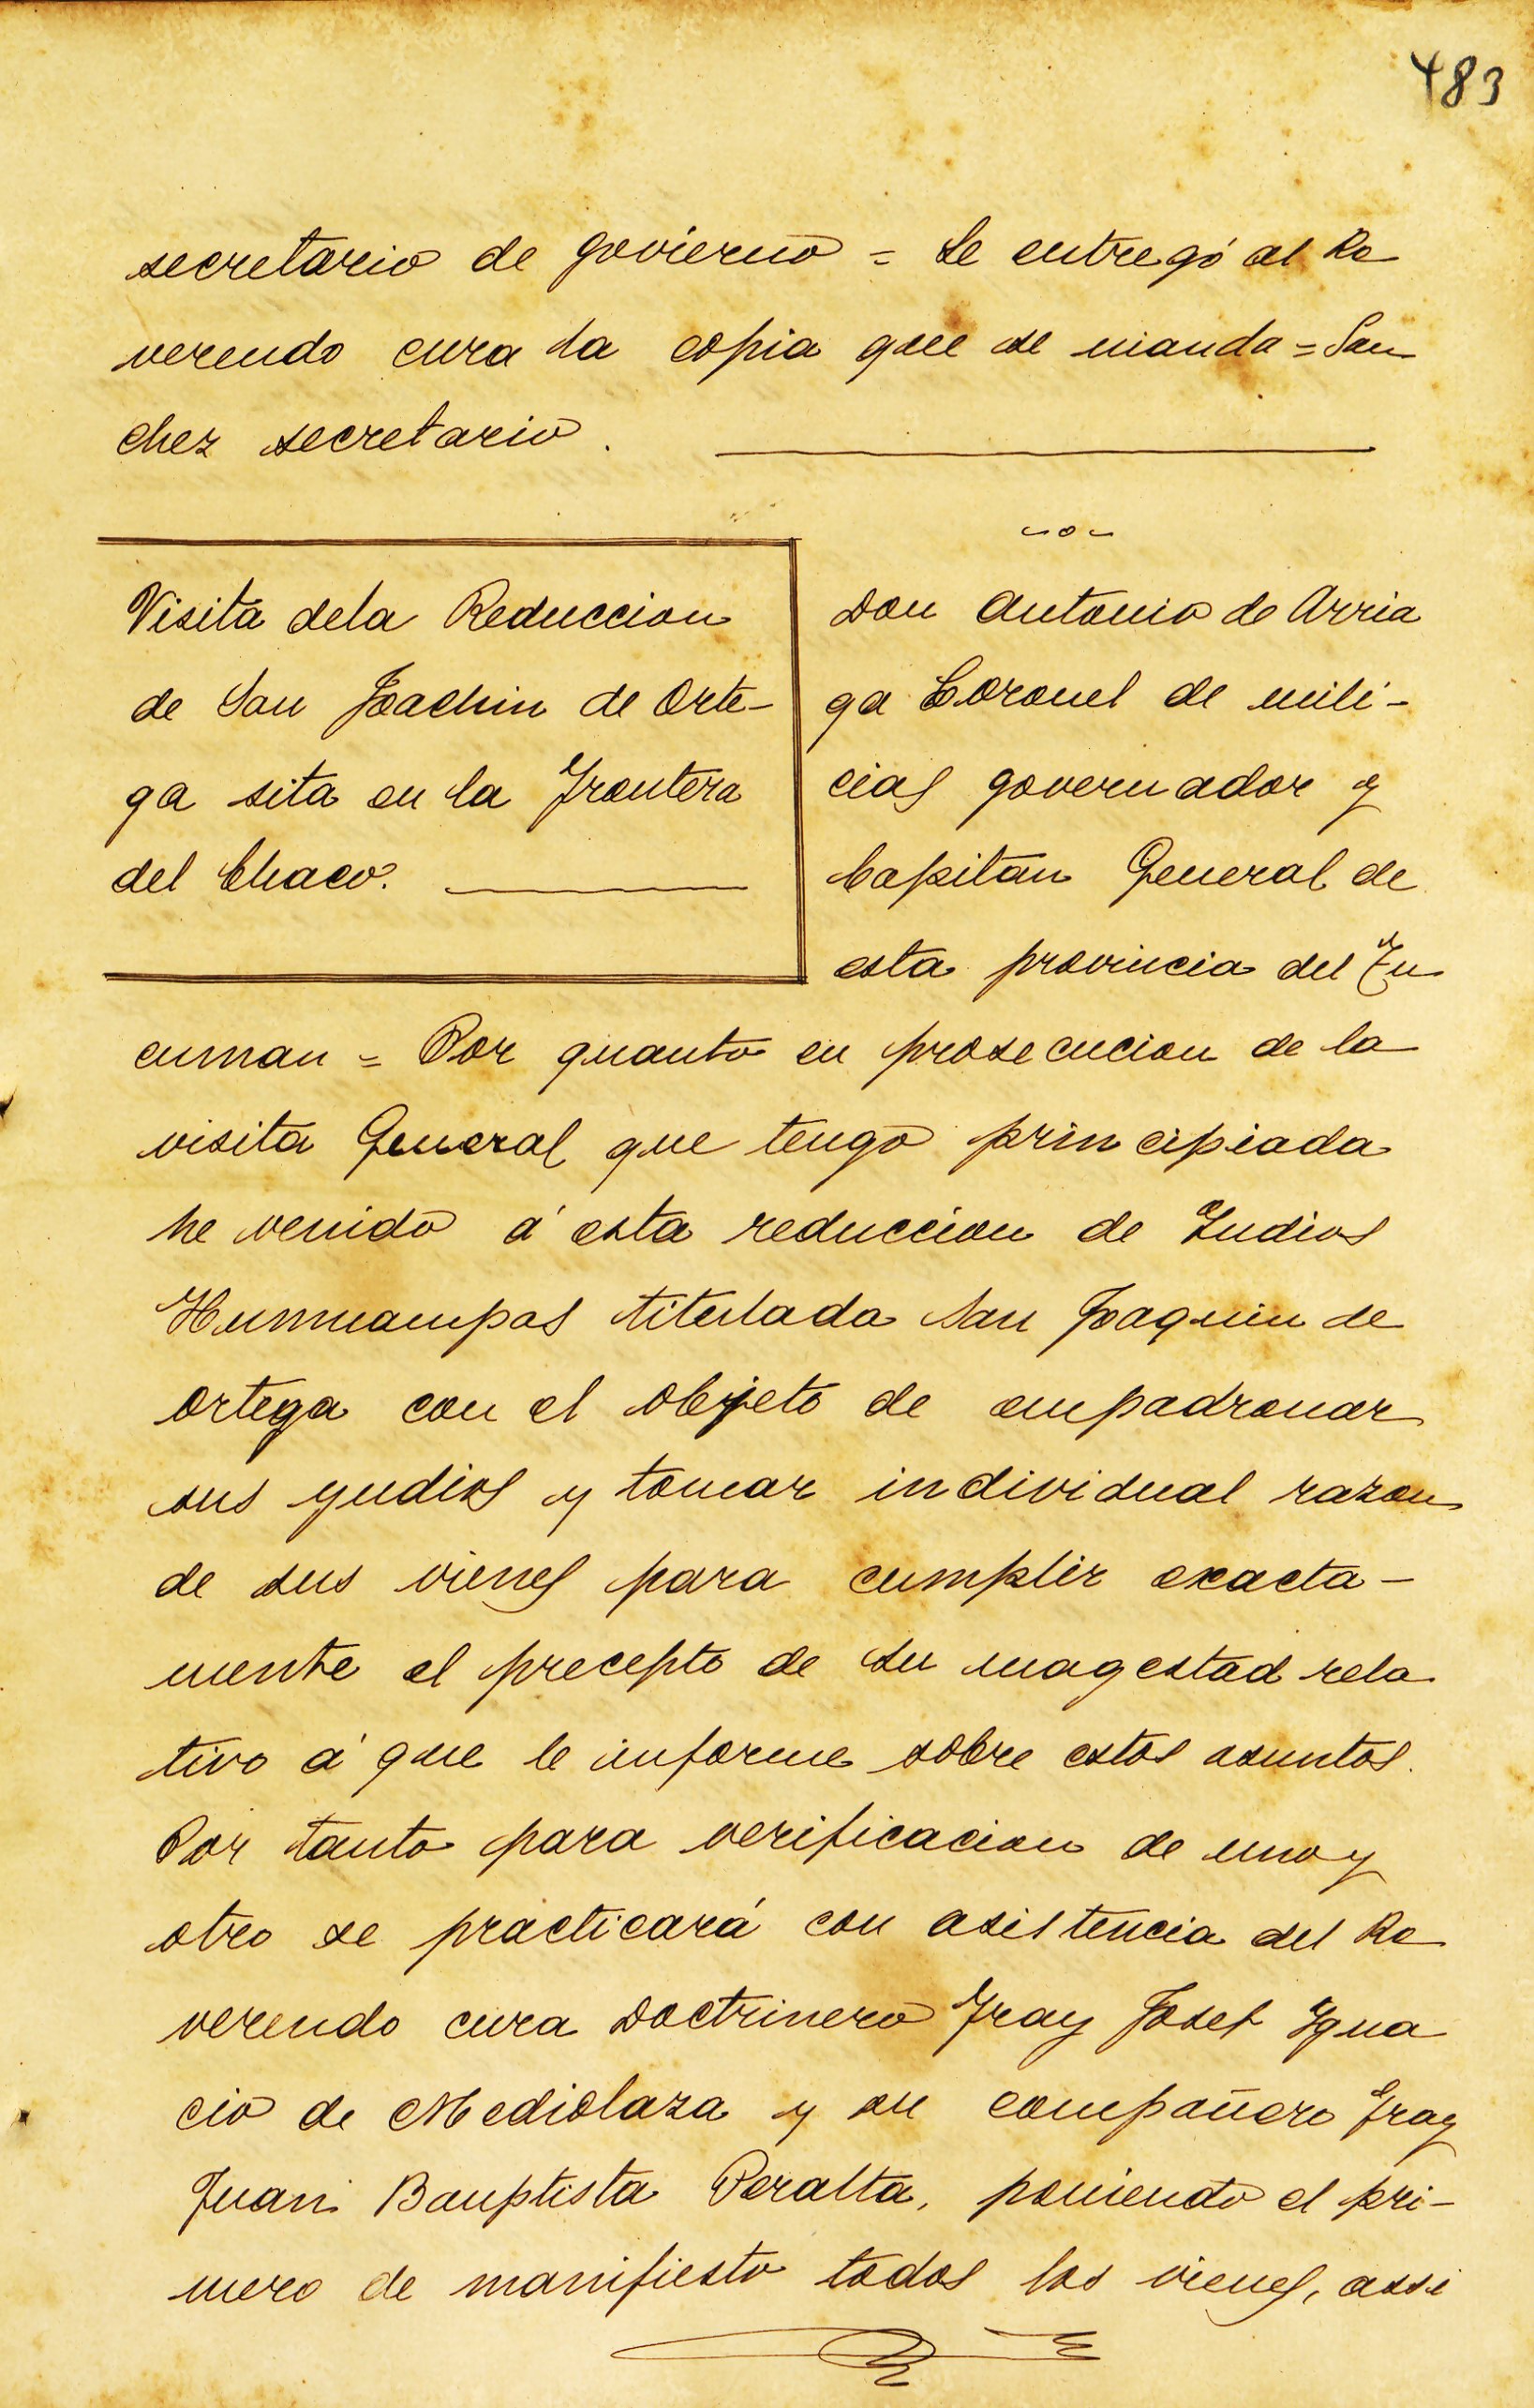 483
secretario de govierno = Se entregó al Re
verendo cura la copia que se manda = San
chez secretario.
Visita dela Reduccion
de San Joachin de Orte-
ga sita en la Frontera
del Chaco.
Don Antonio de Arria
ga Coronel de mili-
cias governador y
Capitan General de
esta provincia del Tu
cuman = Por quanto en prosecucion de la
visita General que tengo principiada
he venido á esta reduccion de Indios
Hummampas titulada San Joaquin de
Ortega con el objeto de empadronar
sus yndios y tomar individual razon
de sus vienes para cumplir exacta-
mente el precepto de su magestad rela
tivo á que le informe sobre estos asuntos.
Por tanto para verificacion de uno y
otro se practicará con asistencia del Re
verendo cura Doctrinero Fray Josef Igna
cio de Mediolaza y su compañero Fray
Juan Bauptista Peralta, poniendo el pri-
mero de manifiesto todos los vienes, assi